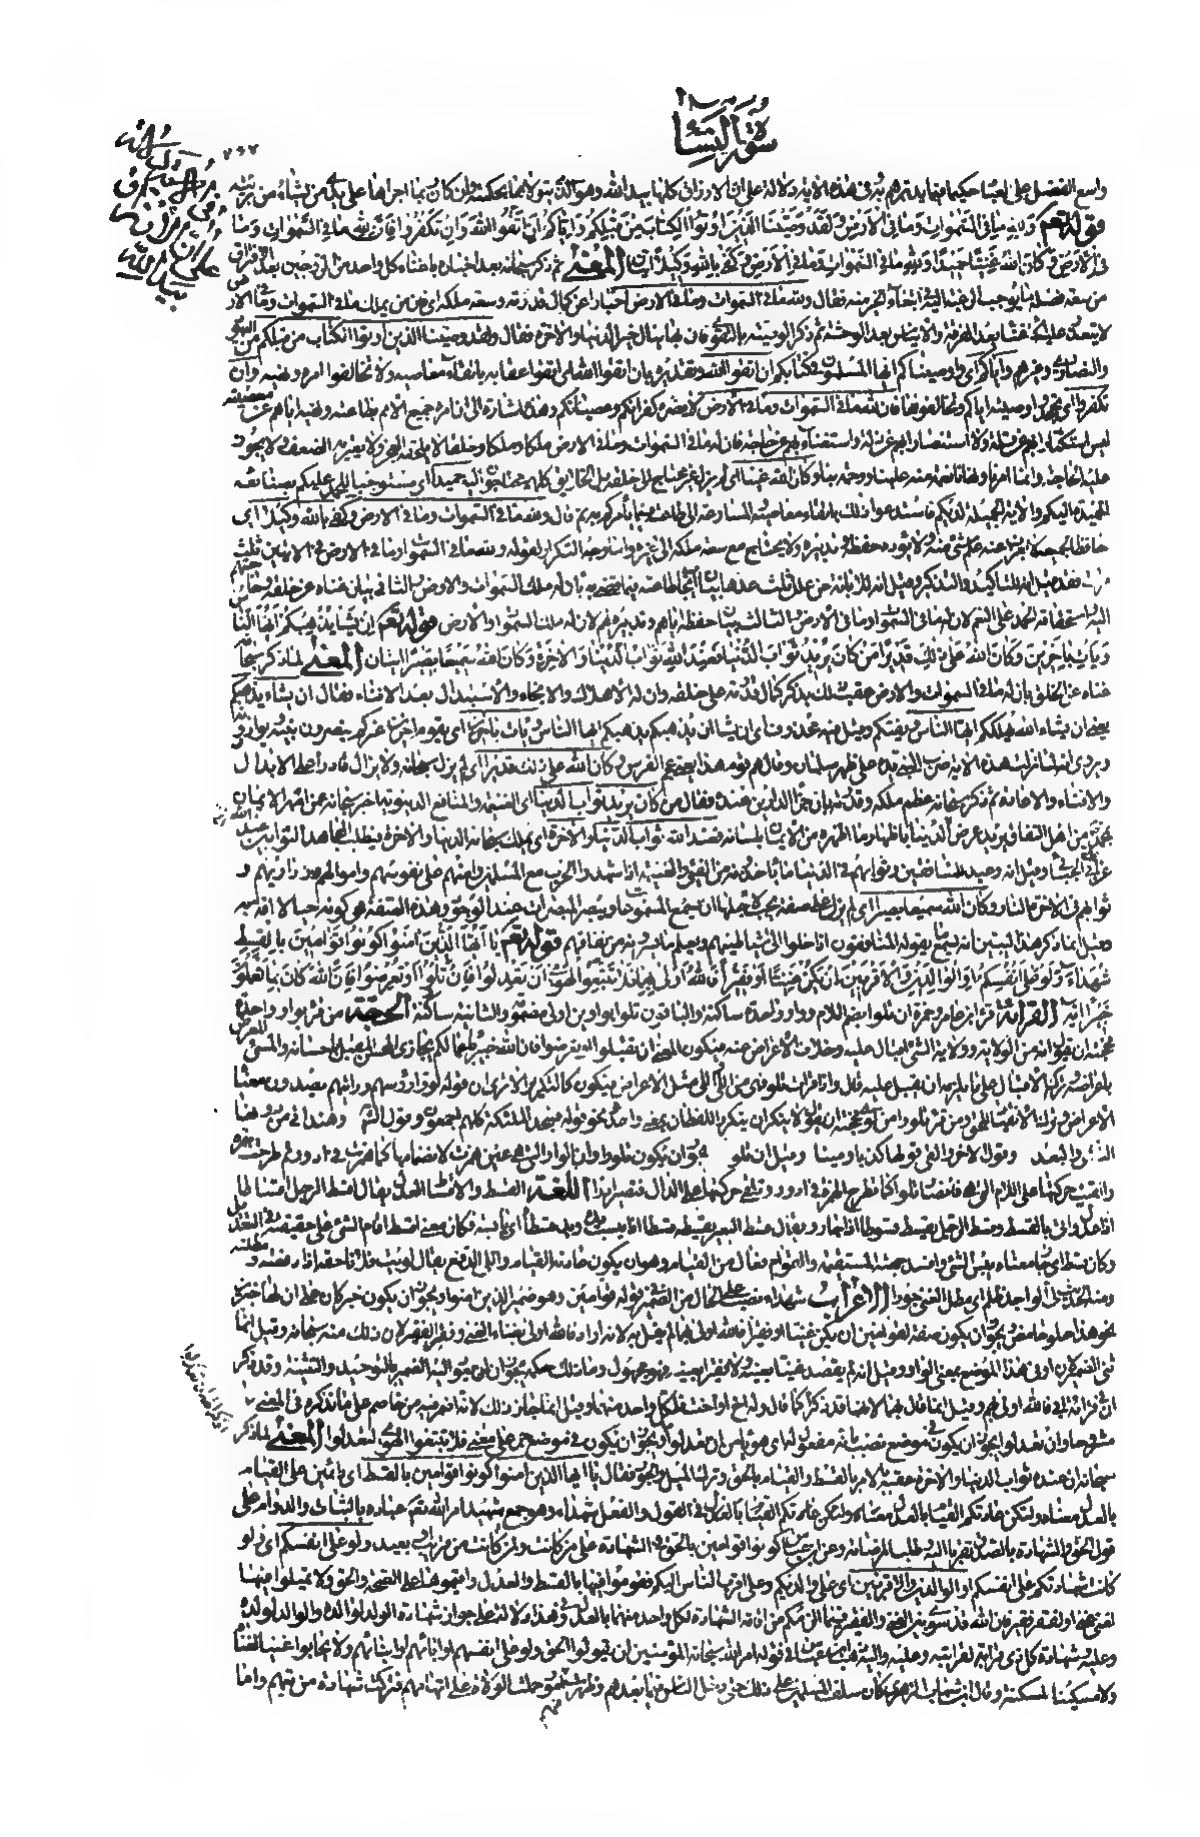 سورة النساء
واسع الفضل على العباد حكيما فيما يدبرهم به وفي هذه الآية دلالة على ان الارزاق كلها بيد الله وهو الذي يتولاها بحكمته وان كان ربما اجراها على يدي من يشاء من بريته
قوله تعالى ولله ما في السموات وما في الارض ولقد وصينا الذين اوتوا الكتاب من قبلكم واياكم ان اتقوا الله وان تكفروا فان لله ما في السموات وما
في الارض وكان الله غنيا حميدا ولله ما في السموات وما في الارض وكفى بالله وكيلا آيتان المعنى ثم ذكر سبحانه بعد اخباره باغناء كل واحد من الزوجين بعد الافتراق
من سعة فضله ما يوجب الرغبة اليه في ابتغاء الخير منه فقال ولله ما في السموات وما في الارض اخبارا عن كمال قدرته وسعة ملكه اي فان من يملك ما في السموات وما في الارض
لا يتعذر عليه الاغناء بعد الفرقة والايناس بعد الوحشة ثم ذكر الوصية بالتقوى فان بها ينال خير الدنيا والآخرة فقال ولقد وصينا الذين اوتوا الكتاب من قبلكم من اليهود
والنصارى وغيرهم واياكم اي واوصيناكم ايها المسلمون في كتابكم ان اتقوا الله وتقديره بان اتقوا الله اي اتقوا عقابه باتقاء معاصيه ولا تخالفوا امره ونهيه وان
تكفروا اي تجحدوا وصيته اياكم وتخالفوها فان لله ما في السموات وما في الارض لا يضره كفرانكم وعصيانكم وهذه اشارة الى ان امره جميع الامم بطاعته ونهيه اياهم عن معصيته
ليس استكثارا بهم عن قلة ولا استنصارا بهم عن ذلة ولا استغناء بهم عن حاجة فان له ما في السموات وما في الارض ملكا وملكا وخلقا لا يلحقه العجز ولا يعتريه الضعف ولا يجوز
عليه الحاجة وانما امرنا ونهانا نعمة منه علينا ورحمة بنا وكان الله غنيا اي لم يزل غير محتاج الى خلقه بل الخلائق كلهم محتاجون اليه حميدا اي مستوجبا للحمد عليكم بصنائعه
الحميدة اليكم وآلائه الجميلة لديكم فاستديموا ذلك باتقاء معاصيه والمسارعة الى طاعته فيما يأمركم به ثم قال ولله ما في السموات وما في الارض وكفى بالله وكيلا اي
حافظا لجميعه لا يعزب عنه علم شيء منه ولا يؤوده حفظه وتدبيره ولا يحتاج مع سعة ملكه الى غيره واما وجه التكرار لقوله ولله ما في السموات وما في الارض في الآيتين ثلث
مرات فقد قيل انه للتأكيد والتذكير وقيل انه للابانة عن علل ثلث احدها بيان ايجاب طاعته فيما قضى به لان له ملك السموات والارض الثاني بيان غناه عن خلقه وحاجتهم
اليه واستحقاقه الحمد على النعم لان له ما في السموات وما في الارض الثالث بيان حفظه اياهم وتدبيره لهم لان له ملك السموات والارض قوله تعالى ان يشأ يذهبكم ايها الناس
ويأت بآخرين وكان الله على ذلك قديرا من كان يريد ثواب الدنيا فعند الله ثواب الدنيا والآخرة وكان الله سميعا بصيرا آيتان المعنى لما ذكر سبحانه
غناه عن الخلق بان له ما في السموات والارض عقب ذلك بذكر كمال قدرته على خلقه وان له الاهلاك والانجاء والاستبدال بعد الافناء فقال ان يشأ يذهبكم
يعني ان يشاء الله يهلككم ايها الناس ويفنيكم وقيل فيه محذوف اي ان يشأ ان يذهبكم يذهبكم ايها الناس ويأت بآخرين اي بقوم آخرين غيركم ينصرون نبيه ويوازرونه
ويروى انه لما نزلت هذه الآية ضرب النبي يده على ظهر سلمان وقال هم قوم هذا يعني عجم الفرس وكان الله على ذلك قديرا اي لم يزل سبحانه ولا يزال قادرا على الابدال
والافناء والاعادة ثم ذكر سبحانه عظم ملكه وقدرته بان جزاء الدارين عنده فقال من كان يريد ثواب الدنيا اي الغنيمة والمنافع الدنيوية اخبر سبحانه عمن اظهر الايمان
بمحمد من اهل النفاق يريد عرض الدنيا باظهار ما اظهره من الايمان بلسانه فعند الله ثواب الدنيا والآخرة اي يملك سبحانه الدنيا والآخرة فيطلب المجاهد الثوابين عند الله
عن الجبائي وقيل انه وعيد للمنافقين وثوابهم في الدنيا ما يأخذونه من الفيء والغنيمة اذا شهدوا الحرب مع المسلمين وامنهم على نفوسهم واموالهم وذراريهم و
ثوابهم في الآخرة النار وكان الله سميعا بصيرا اي لم يزل على صفة يجب لاجلها ان يسمع المسموعات ويبصر المبصرات عند الوجود وهذه الصفة هو كونه حيا لا آفة به
وقيل انما ذكر هذا ليبين انه يسمع ما يقوله المنافقون اذا خلوا الى شياطينهم ويعلم ما يسرونه من نفاقهم قوله تعالى يا ايها الذين آمنوا كونوا قوامين بالقسط
شهداء لله ولو على انفسكم او الوالدين والاقربين ان يكن غنيا او فقيرا فالله اولى بهما فلا تتبعوا الهوى ان تعدلوا وان تلووا او تعرضوا فان الله كان بما تعملون
خبيرا آية القراءة قرأ ابن عامر وحمزة ان تلوا بضم اللام وواو واحدة ساكنة والباقون تلووا بواوين الاولى مضمومة والثانية ساكنة الحجة من قرأ بواو واحدة
فحجته ان يقول انه من الولاية وولاية الشيء اقبال عليه وخلاف الاعراض عنه فيكون المعنى ان تقبلوا او تعرضوا فان الله خبير باعمالكم يجازي المحسن المقبل باحسانه والمسيء المعرض
باعراضه وتركه الاقبال على ما يلزمه ان يقبل عليه قال واذا قرأت تلووا فهي من اللي واللي مثل الاعراض فيكون كالتكرير الا ترى ان قوله لووا رؤسهم ورأيتهم يصدون معناه
الاعراض وترك الانقياد للحق ومن قرأ تلووا من لوى فحجته ان يقول لا ينكر ان يتكرر اللفظان بمعنى واحد نحو قوله فسجد الملئكة كلهم اجمعون وقول الشاعر وهند اتى من دونها
النأي والبعد وقول الآخر والفى قولها كذبا ومينا وقيل ان تلوا يجوز ان يكون تلووا وان الواو التي هي عين همزت لانضمامها كما همزت في ادؤر ثم طرحت الهمزة
والقيت حركتها على اللام التي هي فاء فصار تلوا كما تطرح الهمزة في ادؤر وتلقى حركتها على الدال فتصير ادر اللغة القسط والاقساط العدل يقال اقسط الرجل اقساطا
اذا عدل واتى بالقسط وقسط الرجل يقسط قسوطا اذا جار ويقال قسط البعير يقسط قسطا اذا يبست يده ويد قسطاء اي يابسة فكان معنى اقسط اقام الشيء على حقيقته في العدل
وكان قسط اي جار معناه يبس الشيء وافسد جهته المستقيمة والقوام فعال من القيام وهو ان يكون عادته القيام واللي الدفع يقال لويت فلانا حقه اذا دفعته ومطلته
ومنه الحديث لي الواجد ظلم اي مطل الغني جور الاعراب شهداء نصب على الحال من الضمير في قوله قوامين وهو ضمير الذين آمنوا ويجوز ان يكون خبر كان على ان لها خبرين
نحو هذا حلو حامض ويجوز ان يكون صفة لقوامين ان يكن غنيا او فقيرا فالله اولى بهما لم يقل به لانه اراد فالله اولى بغناء الغني وفقر الفقير لان ذلك منه سبحانه وقيل انما
ثنى الضمير لان او في هذا الموضع بمعنى الواو وقيل انه لم يقصد غنيا بعينه ولا فقيرا بعينه فهو مجهول وما ذلك حكمه يجوز ان يعود اليه الضمير بالتوحيد والتثنية وقد ذكر
ان في قراءة ابي فالله اولى بهم وقيل انما قال بهما لانهما قد ذكرا كما قال وله اخ او اخت فلكل واحد منهما وقيل انما جاز ذلك لانه اضمر فيه من خاصم على ما نذكره في المعنى
مشروحا وان تعدلوا يجوز ان يكون في موضع نصب بانه مفعول له اي هربا من ان تعدلوا ويجوز ان يكون في موضع جر على معنى فلا تتبعوا الهوى لتعدلوا المعنى لما ذكر
سبحانه ان عنده ثواب الدنيا والآخرة عقبه بالامر بالقسط والقيام بالحق وترك الميل والجور فقال يا ايها الذين آمنوا كونوا قوامين بالقسط اي دائمين على القيام
بالعدل معناه ولتكن عادتكم القيام بالعدل في القول والفعل شهداء وهو جمع شهيد امر الله تعالى عباده بالثبات والدوام على
قول الحق والشهادة بالصدق تقربا اليه وطلبا لمرضاته وعن ابن عباس كونوا قوامين بالحق في الشهادة على من كانت ولمن كانت من قريب او بعيد ولو على انفسكم اي ولو
كانت شهادتكم على انفسكم او الوالدين والاقربين اي على والديكم وعلى اقرب الناس اليكم فقوموا فيها بالقسط والعدل واقيموها على الصحة والحق ولا تميلوا فيها
لغنى غني او لفقر فقير فان الله قد سوى بين الغني والفقير فيما الزمكم من اقامة الشهادة لكل واحد منهما بالعدل وفي هذا دلالة على جواز شهادة الولد لوالده والوالد لولده
وعليه وشهادة كل ذي قرابة لقرابته وعليه واليه ذهب ابن عباس في قوله امر الله سبحانه المؤمنين ان يقولوا الحق ولو على انفسهم او آبائهم او ابنائهم ولا يحابوا غنيا لغناه
ولا مسكينا لمسكنته وقال ابن شهاب الزهري كان سلف المسلمين على ذلك حتى دخل الناس فيما بعدهم وظهر منهم امور حملت الولاة على اتهامهم فتركت شهادة من يتهم واما